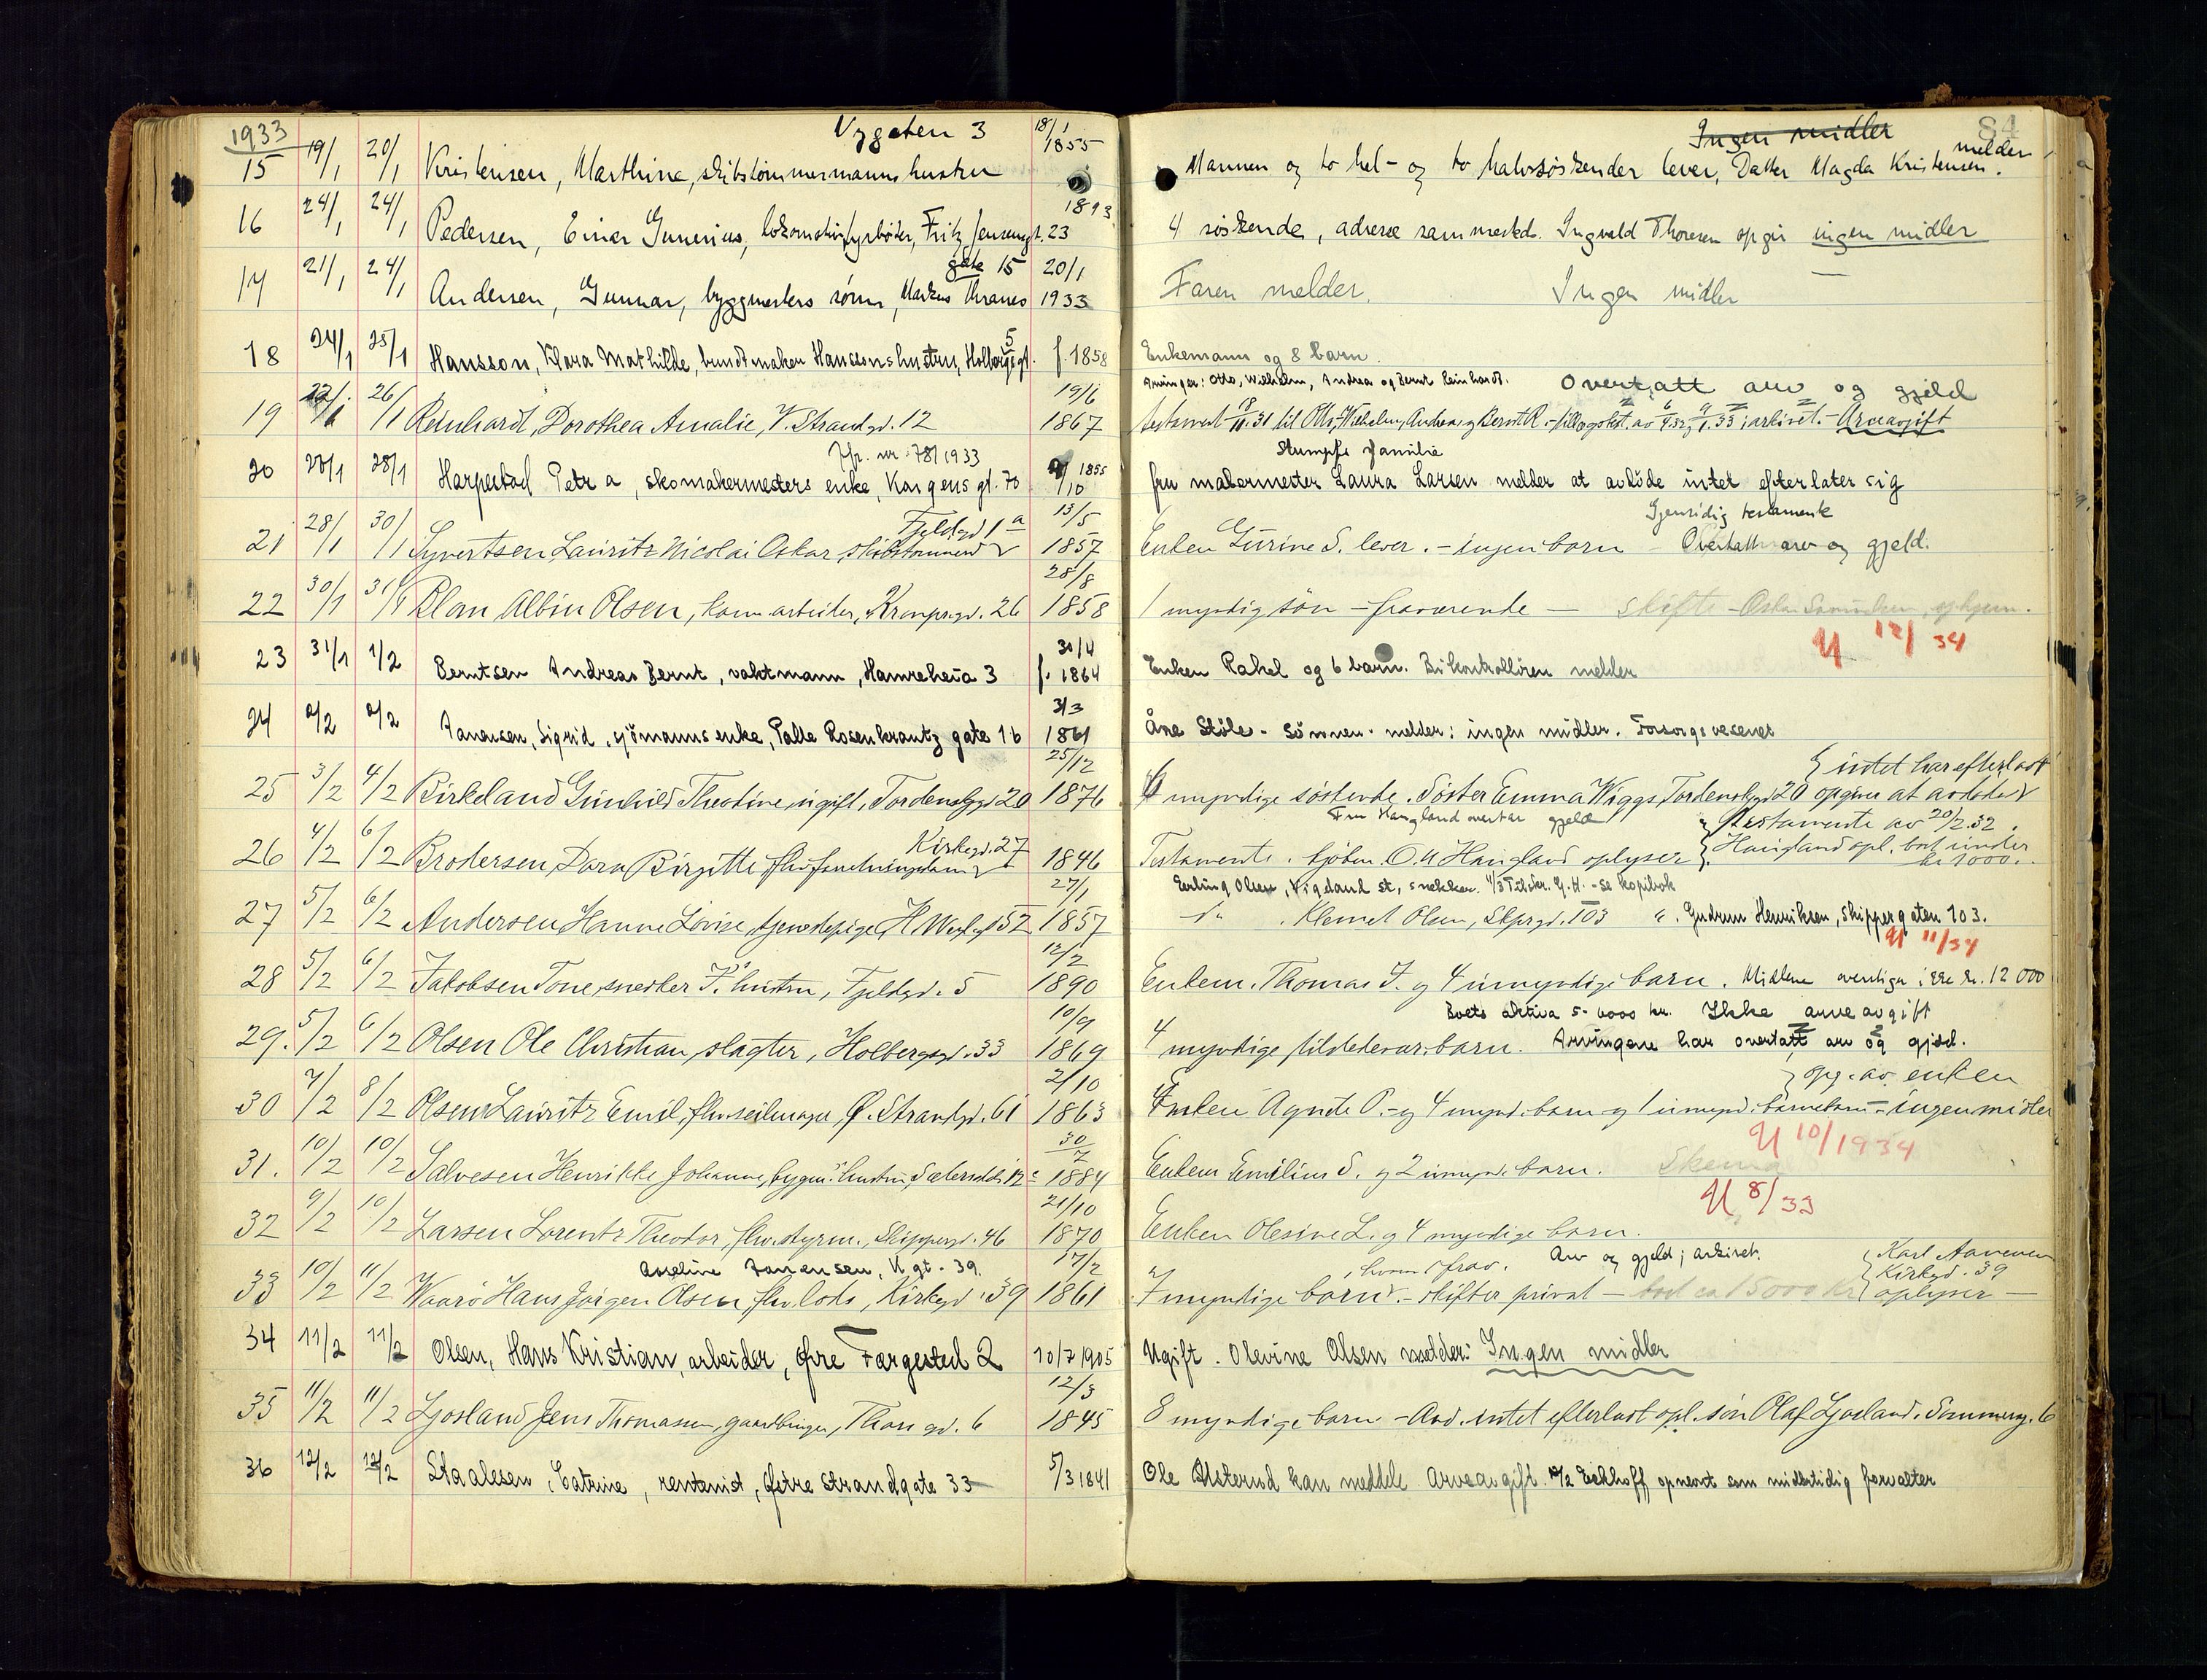 1933 Vygaten 3 18/1 84
15 19/1 20/1 Kristensen, Marthine, skibstømmermanns hustru 1855 Mannen og to hel- og to halvsøskender lever, Datter Magda Kristensen melder.
Ingen midler
16 24/1 24/1 Pedersen, Einar Gunerius, lokomotivfyrbøter, Fritz Jensensgt. 23 1893 4 søskende, adresse sammesteds. Ingvald Thoresen opgir ingen midler
gate 15 20/1
17 21/1 24/1 Andersen, Gunnar, byggmesters sønn, Markus Thranes 1933 Faren melder. Ingen midler
18 24/1 25/1 Hansson, Klara Mathilde, bundtmaker Hanssons hustru, Holbergsgt. 5 f. 1858 Enkemann og 8 barn.
19/6 Arvinger: Otto, Wilhelm, Andrea og Bernt Reinhardt. Overtatt arv og gjeld
19 26/1 Reinhardt, Dorothea Amalie, V. Strandgd. 12 1867 testament 18/11.31 til Otto, Wilhelm, Andrea og Bernt R. - i arkivet. - Arveavgift
Jfr. nr. 78/1933 Stumpfs familie
20 28/1 28/1 Harpestad Petra, skomakermesters enke, Kongensgt. 70 /10 1855 fru malermester Laura Larsen melder at avdøde intet efterlater sig
Fjeldgd 1 a 13/5 Gjensidig testamente
21 28/1 30/1 Syvertsen Lauritz Nicolai Oskar, skibstømmerm 1857 Enken Gurine S. lever. - ingen barn - Overtatt arv og gjeld.
28/8
22 30/1 31/1 Blom Albin Olsen, kom. arbeider, Kronprgd. 26 1858 1 myndig søn - fraværende - skifte
12/34
30/4
23 31/1 1/2 Berntsen Andreas Bernt, vaktmann, Hamreheia 3 f. 1864 Enken Rakel og 6 barn. Bikontrolløren melder
3/3
24 2/2 2/2 Janensen, Sigrid, sjømanns enke, Palle Rosenkrantz gate 16 1861 Åne Støle - Sønnen - melder: ingen midler. Forsorgsvesenet
25/12 intet har efterlatt
25 3/2 4/2 Birkeland Gunhild Theodine, ugift, Tordenskjgd 20 1876 6 myndige søskende. Søster Emma Wiggs, Tordenskgd 20 opgiver at avdøde
Fru Haugland overtar gjeld Testamente av 20/2.32.
Kirkegd. 27
26 4/2 6/2 Brodersen, Dora Birgitte, fhv. forretningsdame 1846 Testamente. Kjøbm. O. M Haugland oplyser Haugland opl. bot under kr 1000.-
27/1 Erling Olsen, Vigeland st., snekker. 4/3 Tilskr. G.H. - Se kopibok
27 5/2 6/2 Andersen Hanne Lovise, tjenestepige, H. Wergsgd 52 1857 do. Klemet Olsen, Skprgd. 103 ". Gudrun Henriksen, Skippergaten 103.
11/34
12/2
28 5/2 6/2 Jakobsen Tone, snedker J.s hustru, Fjeldgd. 5 1890 Enkem. Thomas J. og 4 umyndige barn. Midlene overstiger ikke kr. 12 000
10/9 Boets aktiva 5-6000 kr. Ikke arveavgift
29. 5/2 6/2 Olsen Ole Christian, slagter, Holbergsgd. 33 1869 4 myndige tilstedevær. barn. Arvingene har overtatt arv og gjeld.
2/10 opg. av enken
30 7/2 8/2 Olsen Lauritz Emil, fhv. seilmager, Ø. Strandgd. 61 1863 Enken Agnete O. - og 4 mynd. barn og 1 umynd. barnebarn - ingen midler
30/7 10/1934
31. 10/2 10/2 Salvesen Henrikke Johanne, bygm. hustru, 12 c 1884 Enkem Emilius S. og 2 umynd. barn. Skema
21/10 8/33
32 9/2 10/2 Larsen Lorentz Theodor, fhv. styrm., Skippergd. 46 1870 Enken Olesine L. og 4 myndige barn.
Asseline Janensen, K gt. 39. 17/2 hvorav 1 frav. Arv og gjeld i arkivet. Karl Aanensen Kirkegd. 39 oplyser -
33 10/2 11/2 Waarø Hans Jørgen Olsen fhv. lods, Kirkegd. 39 1861 7 myndige barn. - skifter privat - bot ca 15000 kr
34 11/2 11/2 Olsen, Hans Kristian, arbeider, Øvre Færgested 2 10/7 1905 Ugift. Olevine Olsen melder: Ingen midler
12/3
35 11/2 11/2 Ljosland Jens Thomassen, gaardbruger, Thors gd. 6 1845 8 myndige barn - Avd. intet efterlatt opl. søn Olaf Ljosland, Sommerg. 6
36 12/2 13/2 Staalesen, Catrine, rentenist, Østre Strandgate 33 5/3 1841 Ole Alsterud kan meddele. Arveavgift. Eckhoff opnevnt som midlertidig forvalter